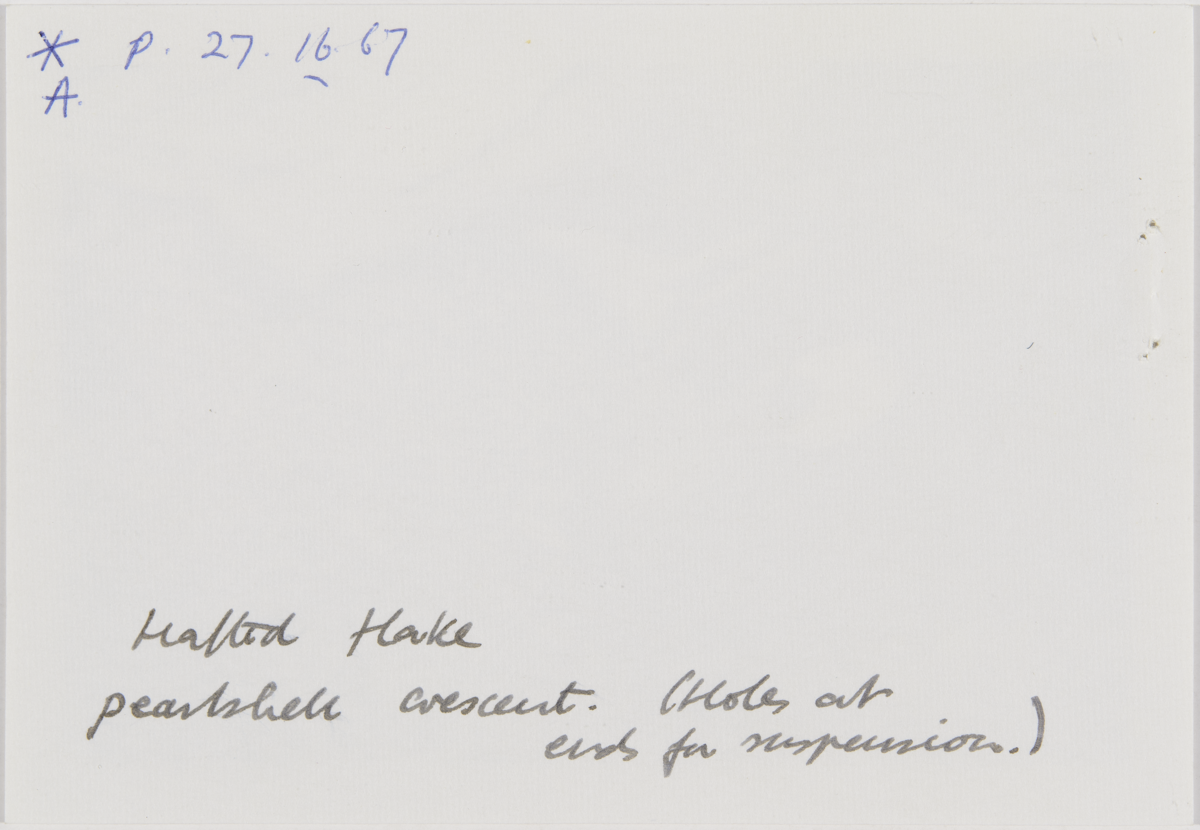 * P. 27. 16-67
A.
Hafted flake
pearlshell crescent. (Holes at
ends for suspension.)